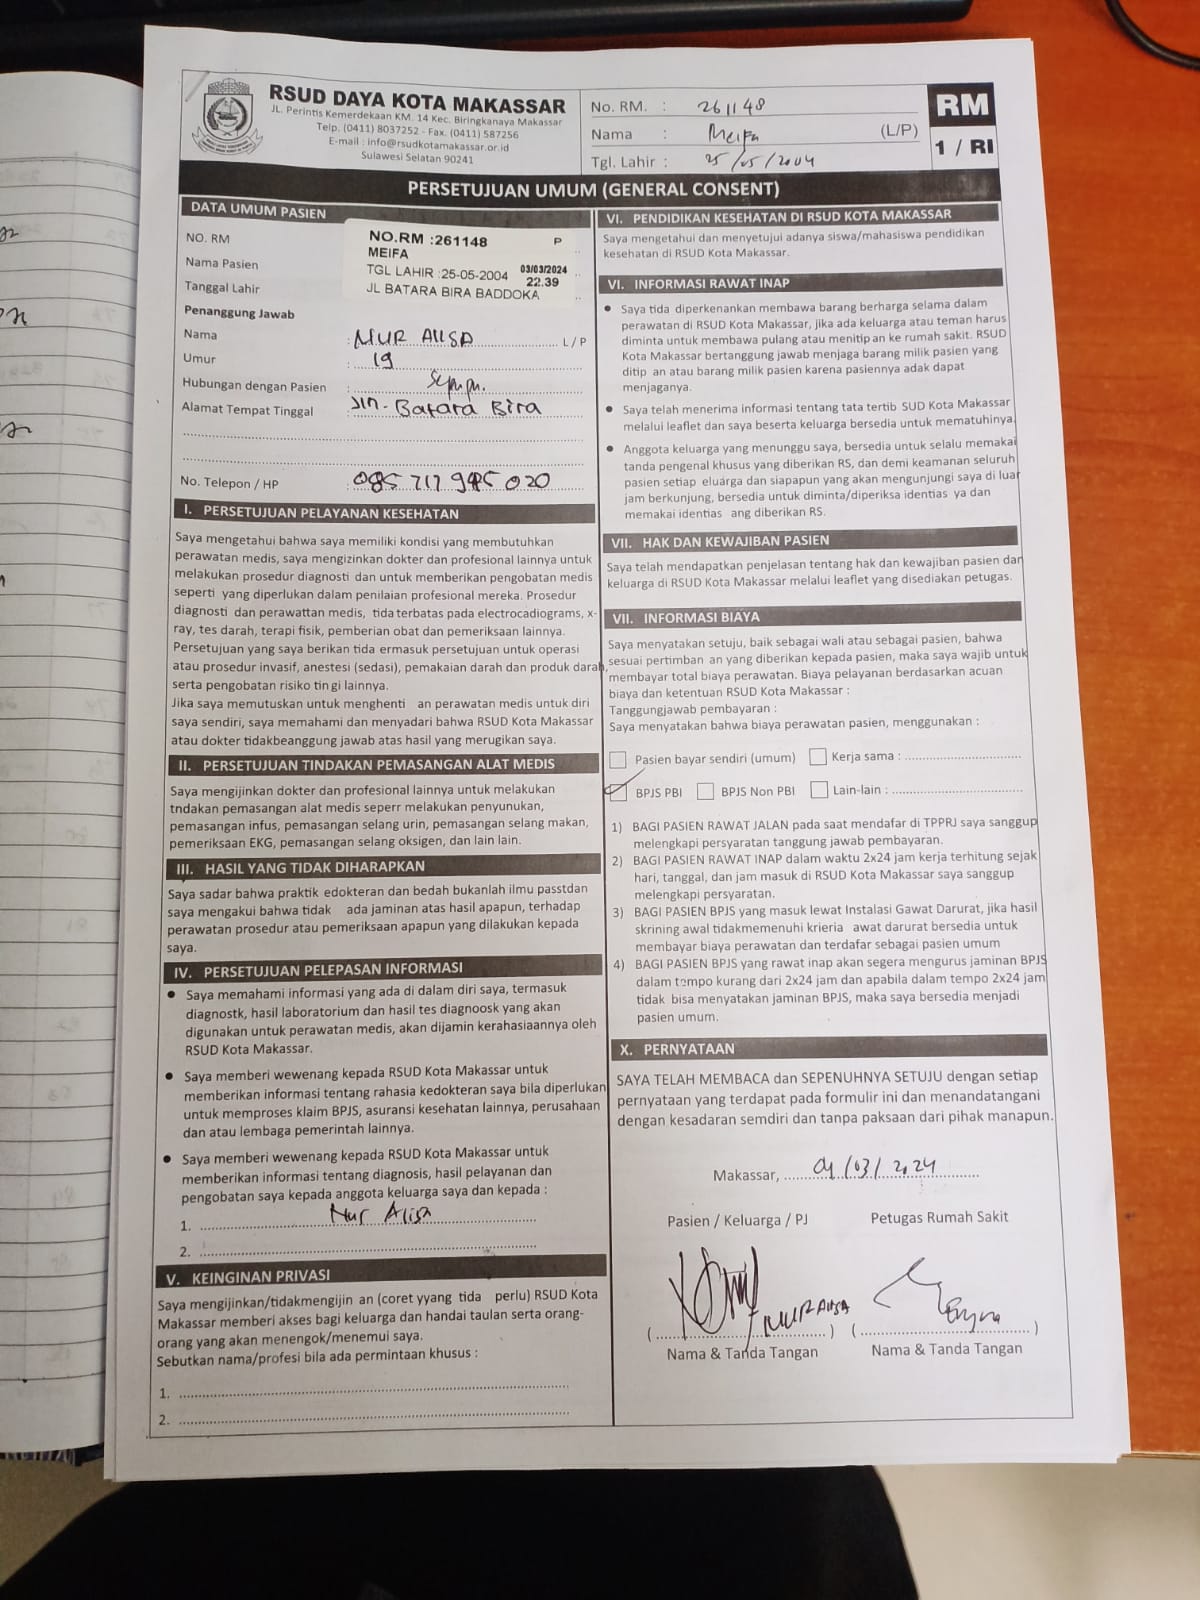 RSUD DAYA KOTA MAKASSAR
JL. Perintis Kemerdekaan KM. 14 Kec. Biringkanaya Makassar
Telp. (0411) 8037252 - Fax. (0411) 587256
E-mail : info@rsudkotamakassar.or.id
Sulawesi Selatan 90241
No. RM. : 261148
Nama : Meifa (L/P)
Tgl. Lahir : 25/05/2004
RM
1 / RI
PERSETUJUAN UMUM (GENERAL CONSENT)
DATA UMUM PASIEN
NO. RM
Nama Pasien
Tanggal Lahir
NO.RM :261148 P
MEIFA
TGL LAHIR :25-05-2004 03/03/2024
22.39
JL BATARA BIRA BADDOKA
Penanggung Jawab
Nama : NUR ALISA L / P
Umur : 19
Hubungan dengan Pasien :
Alamat Tempat Tinggal : Jln. Batara Bira
No. Telepon / HP : 085 717 985 020
I. PERSETUJUAN PELAYANAN KESEHATAN
Saya mengetahui bahwa saya memiliki kondisi yang membutuhkan
perawatan medis, saya mengizinkan dokter dan profesional lainnya untuk
melakukan prosedur diagnosti dan untuk memberikan pengobatan medis
seperti yang diperlukan dalam penilaian profesional mereka. Prosedur
diagnosti dan perawattan medis, tida terbatas pada electrocadiograms, x-
ray, tes darah, terapi fisik, pemberian obat dan pemeriksaan lainnya.
Persetujuan yang saya berikan tida ermasuk persetujuan untuk operasi
atau prosedur invasif, anestesi (sedasi), pemakaian darah dan produk darah,
serta pengobatan risiko tin gi lainnya.
Jika saya memutuskan untuk menghenti an perawatan medis untuk diri
saya sendiri, saya memahami dan menyadari bahwa RSUD Kota Makassar
atau dokter tidakbeanggung jawab atas hasil yang merugikan saya.
II. PERSETUJUAN TINDAKAN PEMASANGAN ALAT MEDIS
Saya mengijinkan dokter dan profesional lainnya untuk melakukan
tndakan pemasangan alat medis seperr melakukan penyunukan,
pemasangan infus, pemasangan selang urin, pemasangan selang makan,
pemeriksaan EKG, pemasangan selang oksigen, dan lain lain.
III. HASIL YANG TIDAK DIHARAPKAN
Saya sadar bahwa praktik edokteran dan bedah bukanlah ilmu passtdan
saya mengakui bahwa tidak ada jaminan atas hasil apapun, terhadap
perawatan prosedur atau pemeriksaan apapun yang dilakukan kepada
saya.
IV. PERSETUJUAN PELEPASAN INFORMASI
● Saya memahami informasi yang ada di dalam diri saya, termasuk
diagnostk, hasil laboratorium dan hasil tes diagnoosk yang akan
digunakan untuk perawatan medis, akan dijamin kerahasiaannya oleh
RSUD Kota Makassar.
● Saya memberi wewenang kepada RSUD Kota Makassar untuk
memberikan informasi tentang rahasia kedokteran saya bila diperlukan
untuk memproses klaim BPJS, asuransi kesehatan lainnya, perusahaan
dan atau lembaga pemerintah lainnya.
● Saya memberi wewenang kepada RSUD Kota Makassar untuk
memberikan informasi tentang diagnosis, hasil pelayanan dan
pengobatan saya kepada anggota keluarga saya dan kepada :
1. Nur Alisa
2.
V. KEINGINAN PRIVASI
Saya mengijinkan/tidakmengijin an (coret yyang tida perlu) RSUD Kota
Makassar memberi akses bagi keluarga dan handai taulan serta orang-
orang yang akan menengok/menemui saya.
Sebutkan nama/profesi bila ada permintaan khusus :
1.
2.
VI. PENDIDIKAN KESEHATAN DI RSUD KOTA MAKASSAR
Saya mengetahui dan menyetujui adanya siswa/mahasiswa pendidikan
kesehatan di RSUD Kota Makassar.
VI. INFORMASI RAWAT INAP
● Saya tida diperkenankan membawa barang berharga selama dalam
perawatan di RSUD Kota Makassar, jika ada keluarga atau teman harus
diminta untuk membawa pulang atau menitip an ke rumah sakit. RSUD
Kota Makassar bertanggung jawab menjaga barang milik pasien yang
ditip an atau barang milik pasien karena pasiennya adak dapat
menjaganya.
● Saya telah menerima informasi tentang tata tertib SUD Kota Makassar
melalui leaflet dan saya beserta keluarga bersedia untuk mematuhinya.
● Anggota keluarga yang menunggu saya, bersedia untuk selalu memakai
tanda pengenal khusus yang diberikan RS, dan demi keamanan seluruh
pasien setiap eluarga dan siapapun yang akan mengunjungi saya di luar
jam berkunjung, bersedia untuk diminta/diperiksa identias ya dan
memakai identias ang diberikan RS.
VII. HAK DAN KEWAJIBAN PASIEN
Saya telah mendapatkan penjelasan tentang hak dan kewajiban pasien dan
keluarga di RSUD Kota Makassar melalui leaflet yang disediakan petugas.
VII. INFORMASI BIAYA
Saya menyatakan setuju, baik sebagai wali atau sebagai pasien, bahwa
sesuai pertimban an yang diberikan kepada pasien, maka saya wajib untuk
membayar total biaya perawatan. Biaya pelayanan berdasarkan acuan
biaya dan ketentuan RSUD Kota Makassar :
Tanggungjawab pembayaran :
Saya menyatakan bahwa biaya perawatan pasien, menggunakan :
Pasien bayar sendiri (umum) Kerja sama :
BPJS PBI BPJS Non PBI Lain-lain :
1) BAGI PASIEN RAWAT JALAN pada saat mendafar di TPPRJ saya sanggup
melengkapi persyaratan tanggung jawab pembayaran.
2) BAGI PASIEN RAWAT INAP dalam waktu 2x24 jam kerja terhitung sejak
hari, tanggal, dan jam masuk di RSUD Kota Makassar saya sanggup
melengkapi persyaratan.
3) BAGI PASIEN BPJS yang masuk lewat Instalasi Gawat Darurat, jika hasil
skrining awal tidakmemenuhi krieria awat darurat bersedia untuk
membayar biaya perawatan dan terdafar sebagai pasien umum
4) BAGI PASIEN BPJS yang rawat inap akan segera mengurus jaminan BPJS
dalam tempo kurang dari 2x24 jam dan apabila dalam tempo 2x24 jam
tidak bisa menyatakan jaminan BPJS, maka saya bersedia menjadi
pasien umum.
X. PERNYATAAN
SAYA TELAH MEMBACA dan SEPENUHNYA SETUJU dengan setiap
pernyataan yang terdapat pada formulir ini dan menandatangani
dengan kesadaran semdiri dan tanpa paksaan dari pihak manapun.
Makassar, 04/03/2024
Pasien / Keluarga / PJ Petugas Rumah Sakit
( NUR ALISA ) ( )
Nama & Tanda Tangan Nama & Tanda Tangan